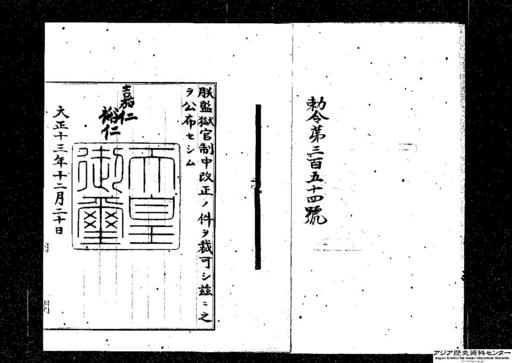 勅令第三百五十四號
朕監獄官制中改正ノ件ヲ裁可シ茲ニ之
ヲ公布セシム
嘉仁
裕仁
天皇御璽
大正十三年十二月二十日
アジア歴史資料センター
Japan Center for Asian Historical Records